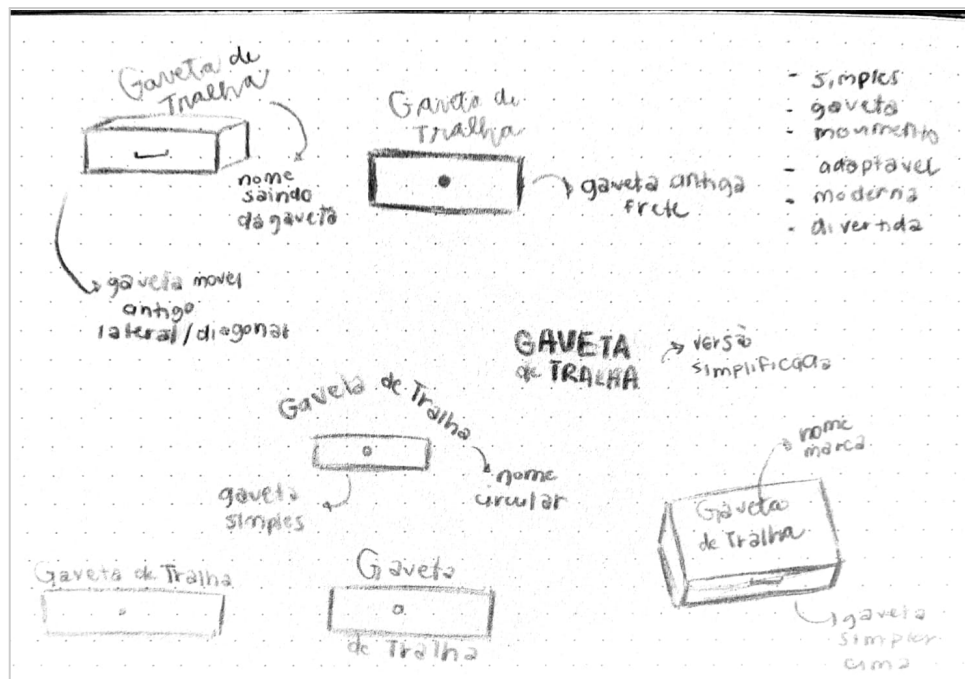 Gaveta de
Tralha
nome
saindo
da gaveta
gaveta movel
antigo
lateral/diagonal
Gaveta de
Tralha
gaveta antiga
frete
- simples
- gaveta
- movimento
- adaptavel
- moderna
- divertida
GAVETA
de TRALHA
versão
simplificada
Gaveta de Tralha
nome
circular
gaveta
simples
nome
marca
Gaveta
de Tralha
gaveta
simples
cima
Gaveta de Tralha
Gaveta
de Tralha